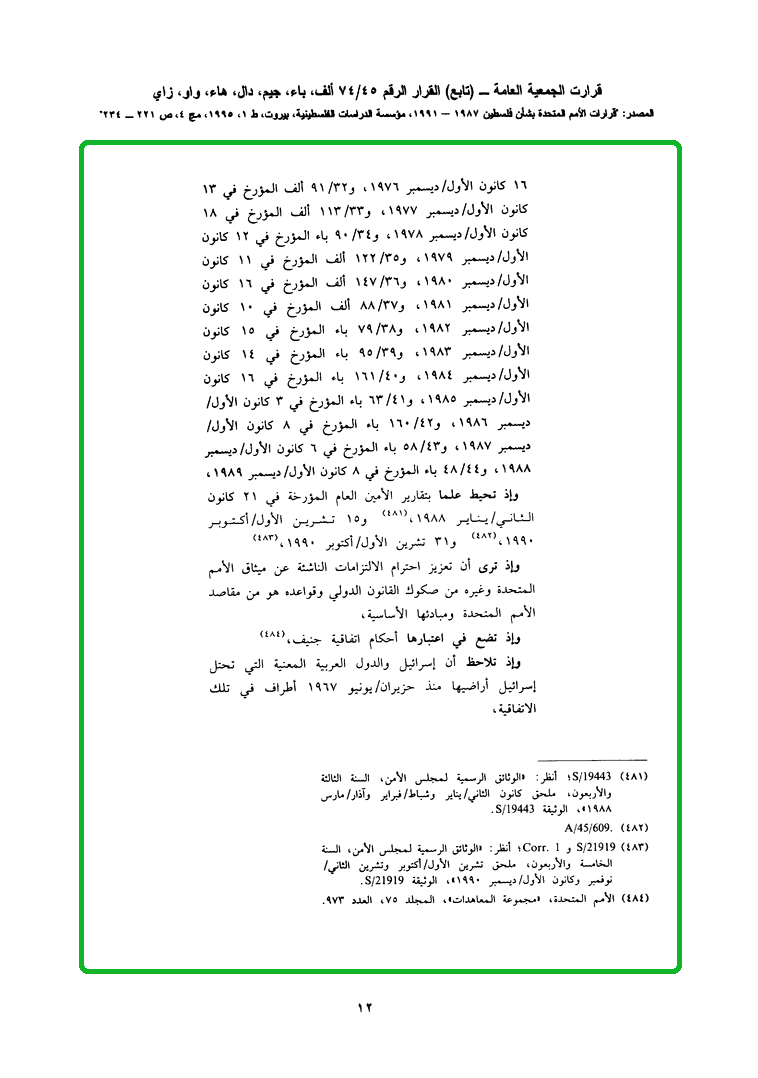 قرارت الجمعية العامة ــ (تابع) القرار الرقم ٧٤/٤٥ ألف، باء، جيم، دال، هاء، واو، زاي
المصدر: "قرارات الأمم المتحدة بشأن فلسطين ١٩٨٧ – ١٩٩١، مؤسسة الدراسات الفلسطينية، بيروت، ط ١، ١٩٩٥، مج ٤، ص ٢٢١ ــ ٢٣٤"
١٦ كانون الأول/ديسمبر ١٩٧٦، و٩١/٣٢ ألف المؤرخ في ١٣
كانون الأول/ديسمبر ١٩٧٧، و١١٣/٣٣ ألف المؤرخ في ١٨
كانون الأول/ديسمبر ١٩٧٨، و٩٠/٣٤ باء المؤرخ في ١٢ كانون
الأول/ديسمبر ١٩٧٩، و١٢٢/٣٥ ألف المؤرخ في ١١ كانون
الأول/ديسمبر ١٩٨٠، و١٤٧/٣٦ ألف المؤرخ في ١٦ كانون
الأول/ديسمبر ١٩٨١، و٨٨/٣٧ ألف المؤرخ في ١٠ كانون
الأول/ديسمبر ١٩٨٢، و٧٩/٣٨ باء المؤرخ في ١٥ كانون
الأول/ديسمبر ١٩٨٣، و٩٥/٣٩ باء المؤرخ في ١٤ كانون
الأول/ديسمبر ١٩٨٤، و١٦١/٤٠ باء المؤرخ في ١٦ كانون
الأول/ديسمبر ١٩٨٥، و٦٣/٤١ باء المؤرخ في ٣ كانون الأول/
ديسمبر ١٩٨٦، و١٦٠/٤٢ باء المؤرخ في ٨ كانون الأول/
ديسمبر ١٩٨٧، و٥٨/٤٣ باء المؤرخ في ٦ كانون الأول/ديسمبر
١٩٨٨، و٤٨/٤٤ باء المؤرخ في ٨ كانون الأول/ديسمبر ١٩٨٩،
وإذ تحيط علما بتقارير الأمين العام المؤرخة في ٢١ كانون
الثاني/يناير ١٩٨٨،(٤٨١) و١٥ تشرين الأول/أكتوبر
١٩٩٠،(٤٨٢) و٣١ تشرين الأول/أكتوبر ١٩٩٠،(٤٨٣)
وإذ ترى أن تعزيز احترام الالتزامات الناشئة عن ميثاق الأمم
المتحدة وغيره من صكوك القانون الدولي وقواعده هو من مقاصد
الأمم المتحدة ومبادئها الأساسية،
وإذ تضع في اعتبارها أحكام اتفاقية جنيف،(٤٨٤)
وإذ تلاحظ أن إسرائيل والدول العربية المعنية التي تحتل
إسرائيل أراضيها منذ حزيران/يونيو ١٩٦٧ أطراف في تلك
الاتفاقية،
(٤٨١) S/19443؛ أنظر: «الوثائق الرسمية لمجلس الأمن، السنة الثالثة
والأربعون، ملحق كانون الثاني/يناير وشباط/فبراير وآذار/مارس
١٩٨٨»، الوثيقة S/19443.
(٤٨٢) A/45/609.
(٤٨٣) S/21919 و Corr. 1؛ أنظر: «الوثائق الرسمية لمجلس الأمن، السنة
الخامسة والأربعون، ملحق تشرين الأول/أكتوبر وتشرين الثاني/
نوفمبر وكانون الأول/ديسمبر ١٩٩٠»، الوثيقة S/21919.
(٤٨٤) الأمم المتحدة، «مجموعة المعاهدات»، المجلد ٧٥، العدد ٩٧٣.
١٢